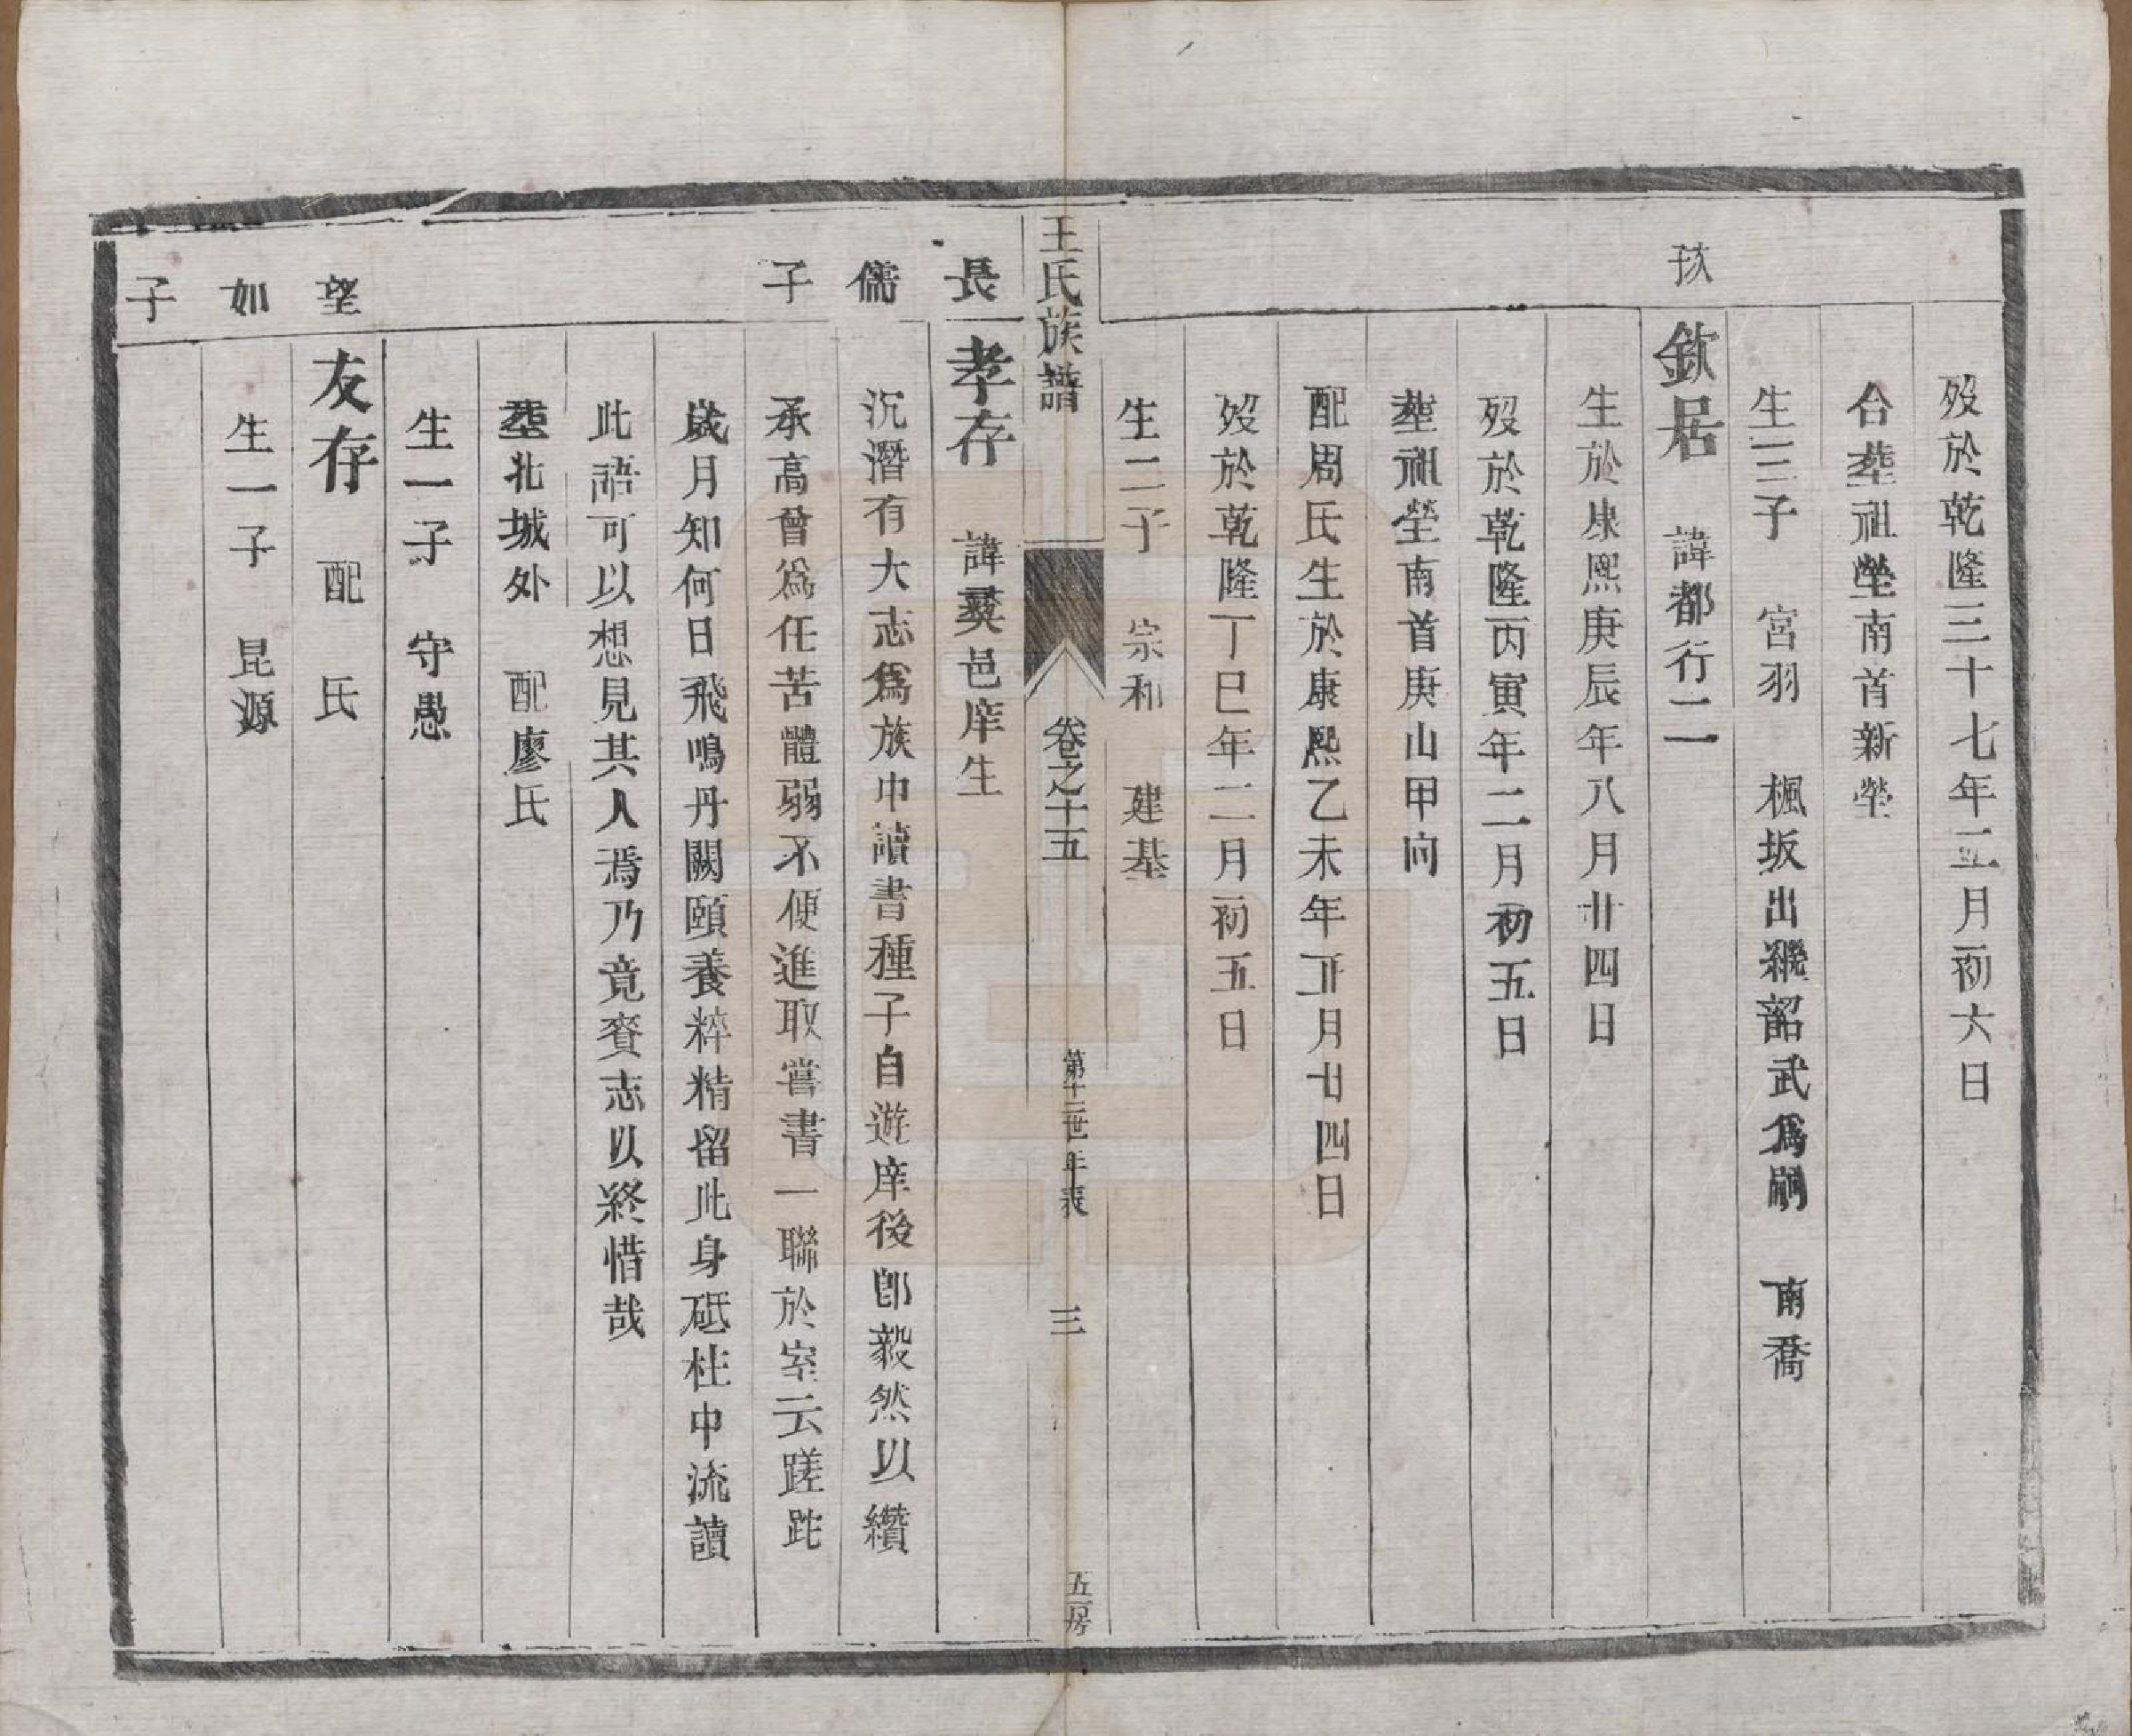 歿於乾隆三十七年五月初六日
合塟祖塋南首新塋
生三子 宮羽 楓坂出繼韶武爲嗣 南喬
欽居 諱都行二
生於康熙庚辰年八月廿四日
歿於乾隆丙寅年二月初五日
塟祖塋南首庚山甲向
配周氏生於康熙乙未年正月廿四日
歿於乾隆丁巳年二月初五日
生二子 宗和 建基
王氏族譜 卷之十五 第十二世年表 三 五房
長 孝存 諱龑邑庠生
儒 沉潛有大志爲族中讀書種子自遊庠後卽毅然以纘
子 承高曾爲任苦體弱不便進取嘗書一聯於室云蹉跎
歲月知何日飛鳴丹闕頤養粹精留此身砥柱中流讀
此語可以想見其人焉乃竟賫志以終惜哉
塟北城外 配廖氏
生一子 守愚
望 友存 配 氏
如 生一子 昆源
子